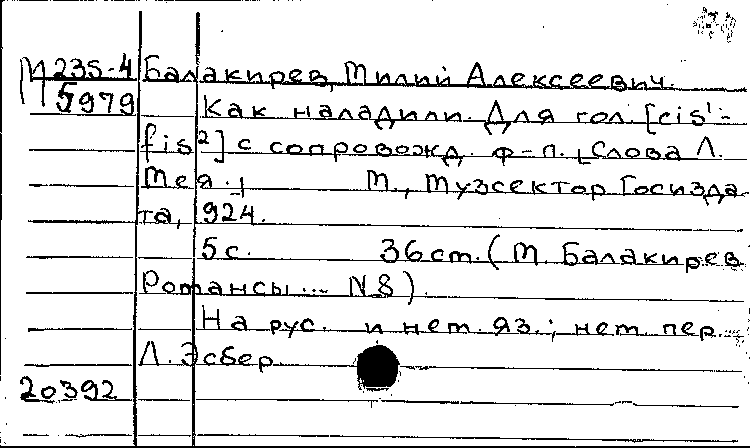 М 235-4 Балакирев, Милий Алексеевич.
5979 Как наладили. Для гол. [cis¹-
fis²] с сопровожд. ф-п. [Слова Л.
Мея.] М., Музсектор Госизда-
та, 924.
5 с. 36 ст. (М. Балакирев
Романсы... N 8).
На рус. и нем. яз.; нем. пер.
Л. Эсбер.
20392